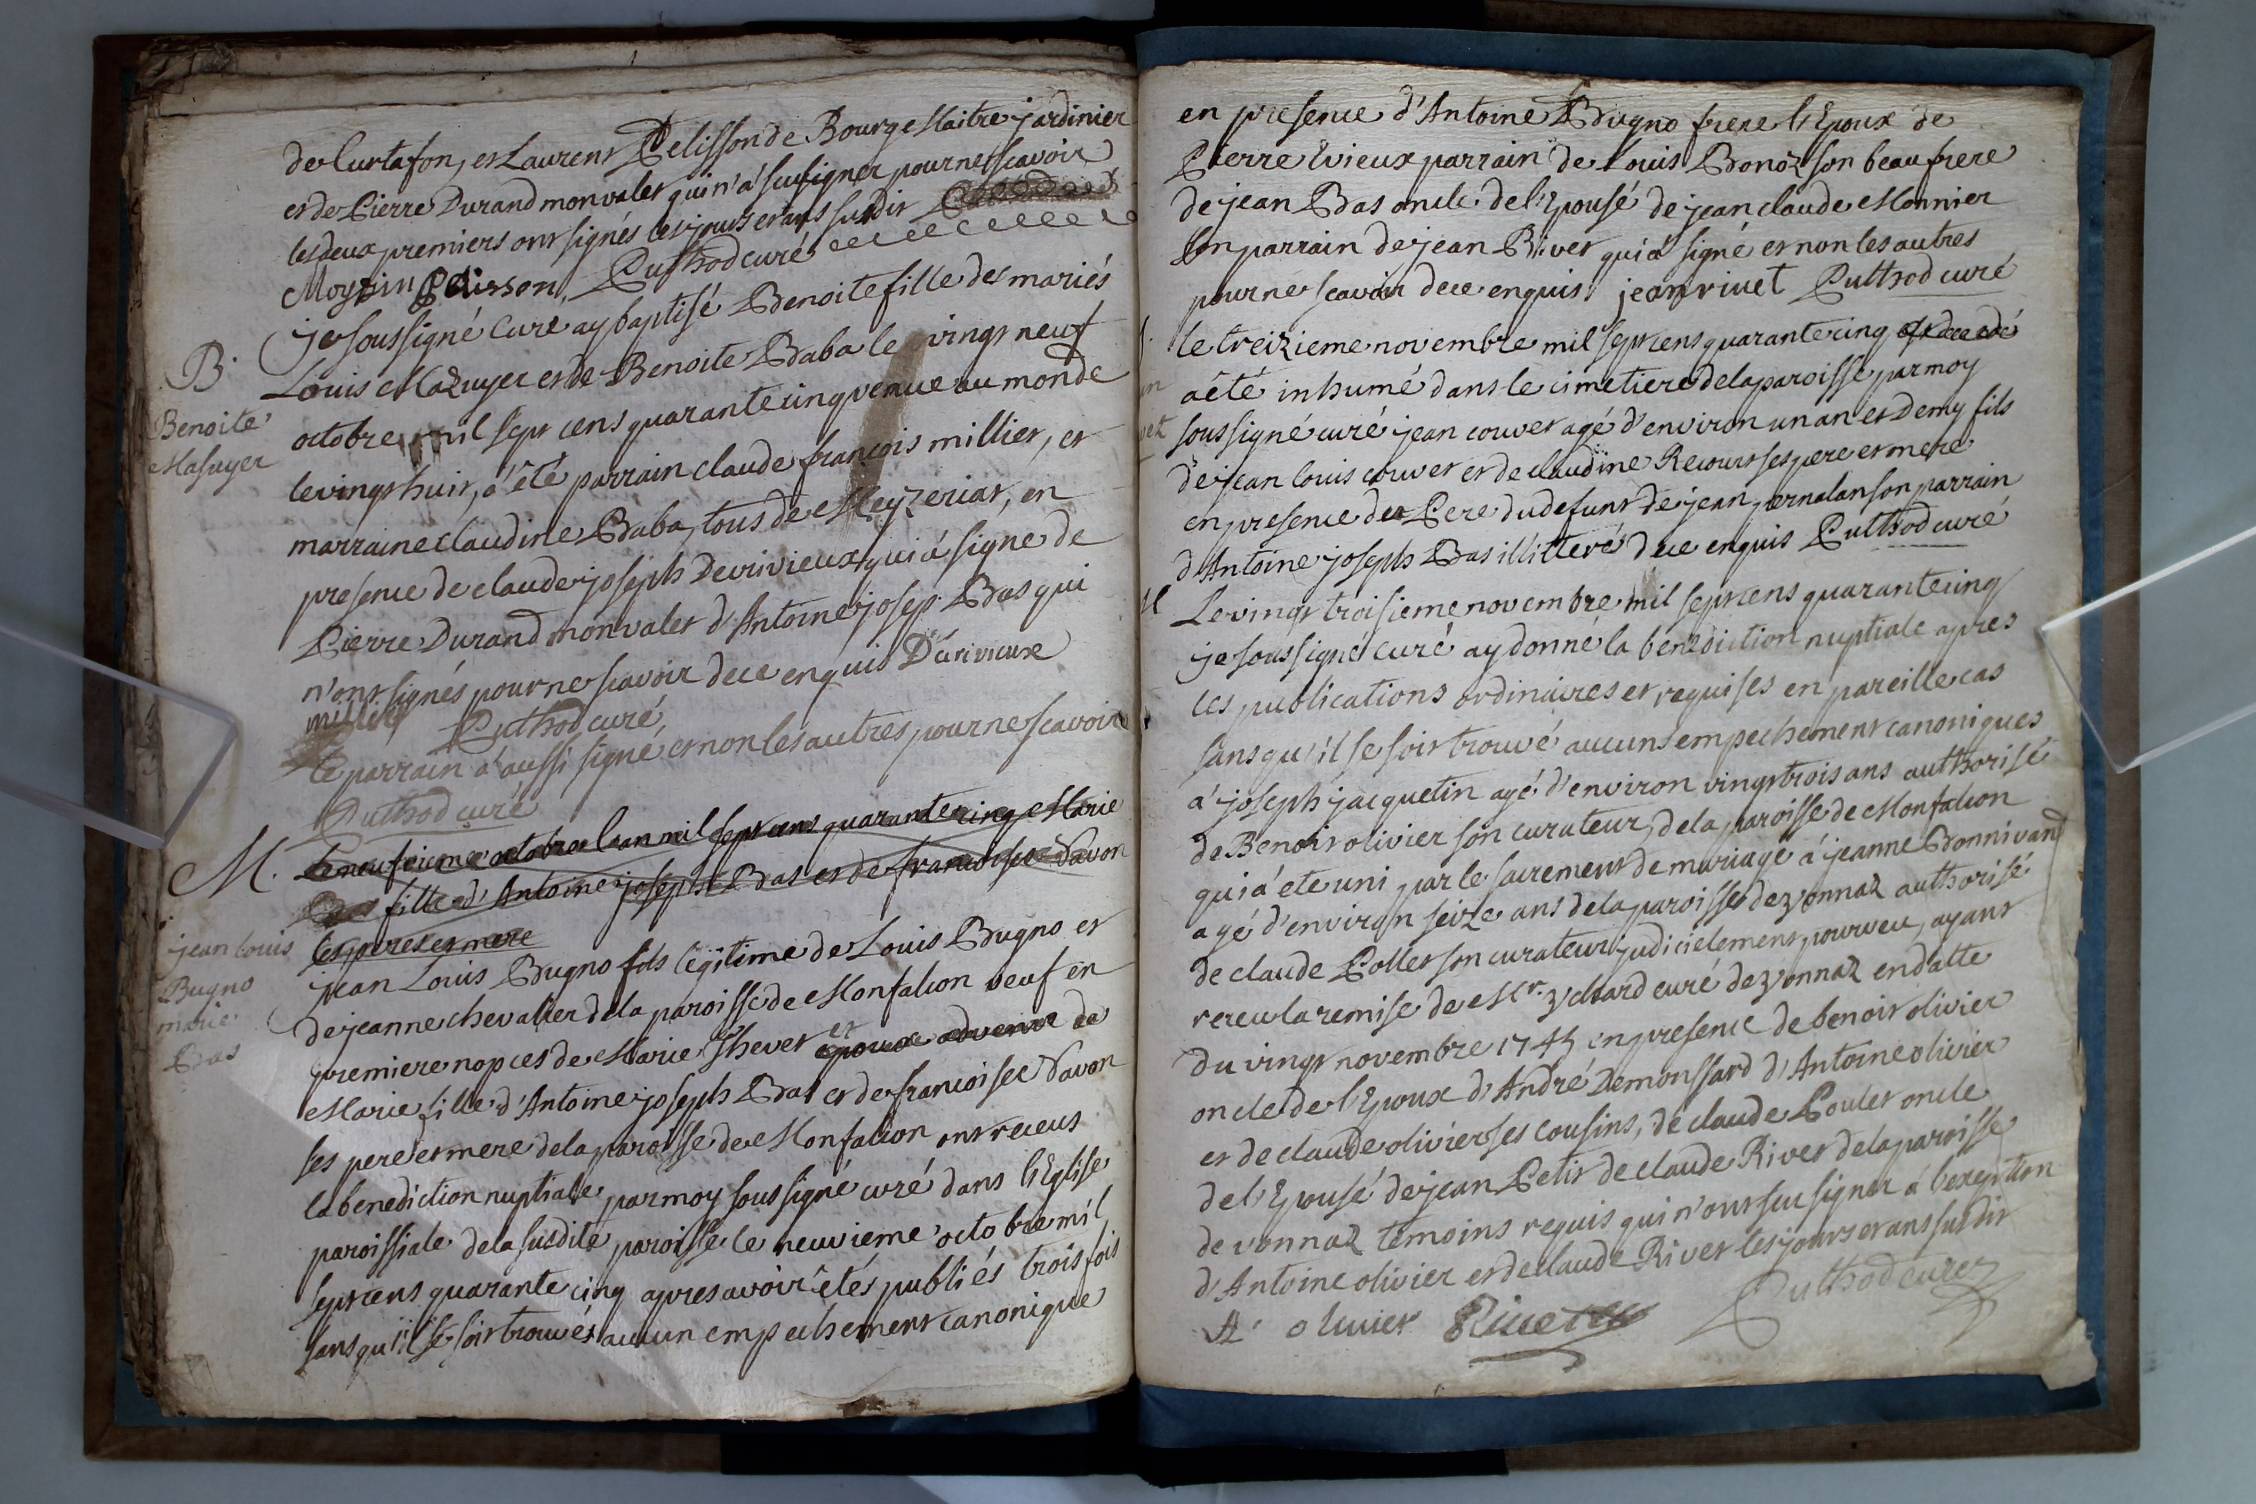 de Curtafon, et Laurent Pelisson de Bourg Maitre jardinier
et de Pierre Durand mon valet qui n'a sceu signer pour ne scavoir
les deux premiers ont signés les jours et ans susdit
Moyzin Pelisson Puthod curé
B.
je soussigné Curé ay baptisé Benoite fille des mariés
Louis Mazuyer et de Benoite Baba le vingt neuf
octobre mil sept cens quarante cinq venue au monde
Benoite
Masuyer
le vingt huit, a été parrain claude françois millier, et
marraine claudine Baba, tous de Meyzeriat, en
presence de claude joseph Derivieux qui a signe de
Pierre Durand mon valet d'Antoine josep. Bas qui
n'ont signés pour ne scavoir de ce enquis Dérivieux
millier Puthod curé
le parrain a aussi signé et non les autres pour ne scavoir
Puthod curé
M.
Le neufvieme octobre lan mil sept cens quarante cinq Marie
Bas fille d'Antoine joseph Bas et de francoisee Davon
ses pere et mere
jean Louis
Bugno
marie
Bas
jean Louis Bugno fils legitime de Louis Bugno et
de jeanne chevalier de la paroisse de Monfalcon veuf en
premiere nopces de Marie Thevet et epoux advenir de
Marie fille d'Antoine joseph Bas et de francoisee Davon
ses pere et mere de la paroisse de Monfalcon ont receus
la benediction nuptiale par moy soussigné curé dans l'Eglise
paroissiale de la susdite paroisse le neuvieme octobre mil
sept cens quarante cinq apres avoir étés publiés trois fois
sans qu'il se soit trouvés aucun empechement canonique
en presence d'Antoine Bugno frere l'Epoux de
Pierre Evieux parrain de Louis Bonoz son beau frere
de jean Bas oncle de l'Epousé de jean claude Monnier
son parrain de jean Rivet qui a signé et non les autres
pour ne scavoir de ce enquis jean rivet Puthod curé
le treizieme novembre mil sept cens quarante cinq est decedé
a été inhumé dans le cimetiere de la paroisse par moy
soussigné curé jean couvet agé d'environ un an et demy fils
de jean louis couvet et de claudine Recour ses pere et mere
en presence de Pere du defunt de jean pernalan son parrain
d'Antoine joseph Bas illitteré de ce enquis Puthod curé
Le vingt troisieme novembre mil sept cens quarante cinq
je soussigné curé ay donné la benediction nuptiale apres
les publications ordinaires et requises en pareille cas
sans qu'il se soit trouvé aucuns empechement canoniques
a joseph jacquetin agé d'environ vingt trois ans authorisé
de Benoit olivier son curateur, de la paroisse de Monfalcon
qui a ete uni par le sacrement de mariage a jeanne Bonnivand
agé d'environ seize ans de la paroisse de vonnaz authorisé
de claude Pollet son curateur judicielement pourveu, ayant
receu la remise de Mr. ychard curé de vonnaz en datte
du vingt novembre 1745 en presence de benoit olivier
oncle de l'Epoux d'André Demonssard d'Antoine olivier
et de claude olivier ses cousins, de claude Poulet oncle
de l'Epousé de jean Petit de claude Rivet de la paroisse
de vonnaz temoins requis qui n'ont sceu signer a l'exeption
d'Antoine olivier et de claude Rivet les jours et ans susdit
A olivier Rivet Puthod curez